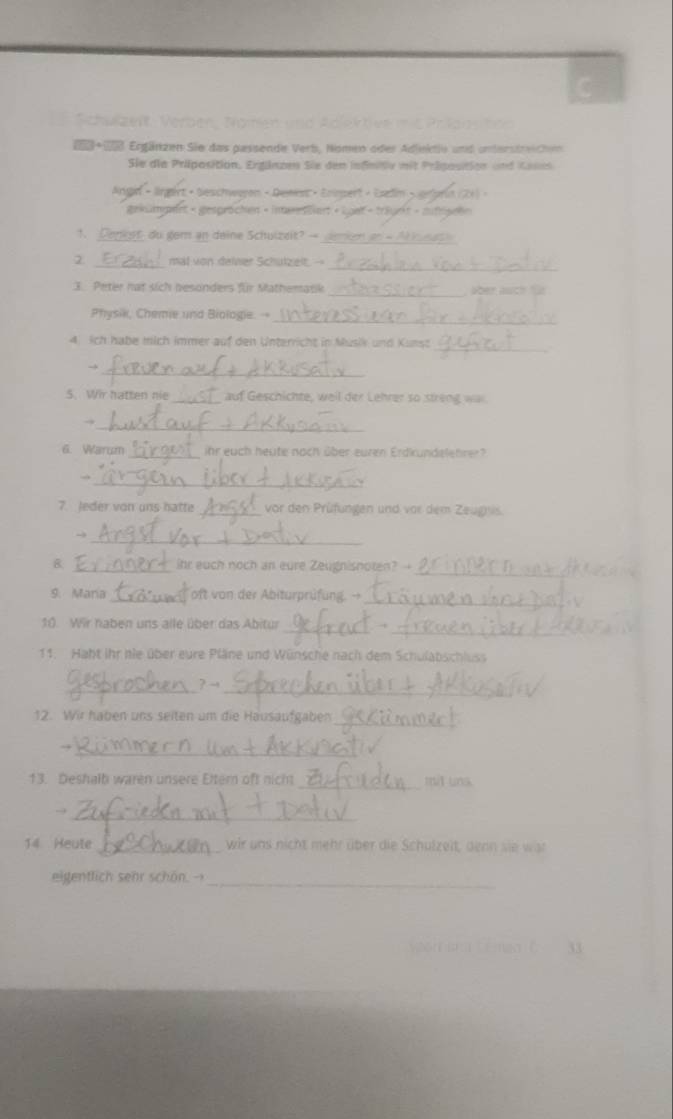 C
Schulzeit: Verben, Nomen und Adjektive mit Präposition
Ergänzen Sie das passende Verb, Nomen oder Adjektiv und unterstreichen
Sie die Präposition. Ergänzen Sie den Infinitiv mit Präposition und Kasus.
Angst • ärgert • beschweren • Denkst • Erinnert • Erzähl • gefreut (2x) •
gekümmert • gesprochen • interessiert • Lust • träumt • zufrieden
1. Denkst du gern an deine Schulzeit? → denken an + Akkusativ
2. Erzähl mal von deiner Schulzeit. → Erzahlen von + Dativ
3. Peter hat sich besonders für Mathematik interessiert, aber auch für
Physik, Chemie und Biologie. → interessieren für +
4. Ich habe mich immer auf den Unterricht in Musik und Kunst gefreut
→ freuen auf + Akkusativ
5. Wir hatten nie Lust auf Geschichte, weil der Lehrer so streng war.
→ Lust auf + Akkusativ
6. Warum ärgert ihr euch heute noch über euren Erdkundelehrer?
→ ärgern über + Akkusativ
7. Jeder von uns hatte Angst vor den Prüfungen und vor dem Zeugnis.
→ Angst vor + Dativ
8. Erinnert ihr euch noch an eure Zeugnisnoten? → erinnern an + Akkusativ
9. Maria träumt oft von der Abiturprüfung. → träumen von + Dativ
10. Wir haben uns alle über das Abitur gefreut → freuen über + Akkusativ
11. Habt ihr nie über eure Pläne und Wünsche nach dem Schulabschluss
gesprochen ? → Sprechen über + Akkusativ
12. Wir haben uns selten um die Hausaufgaben gekümmert
→ Kümmern um + Akkusativ
13. Deshalb waren unsere Eltern oft nicht Zufrieden mit uns.
→ Zufrieden mit + Dativ
14. Heute beschweren wir uns nicht mehr über die Schulzeit, denn sie war
eigentlich sehr schön. →
33